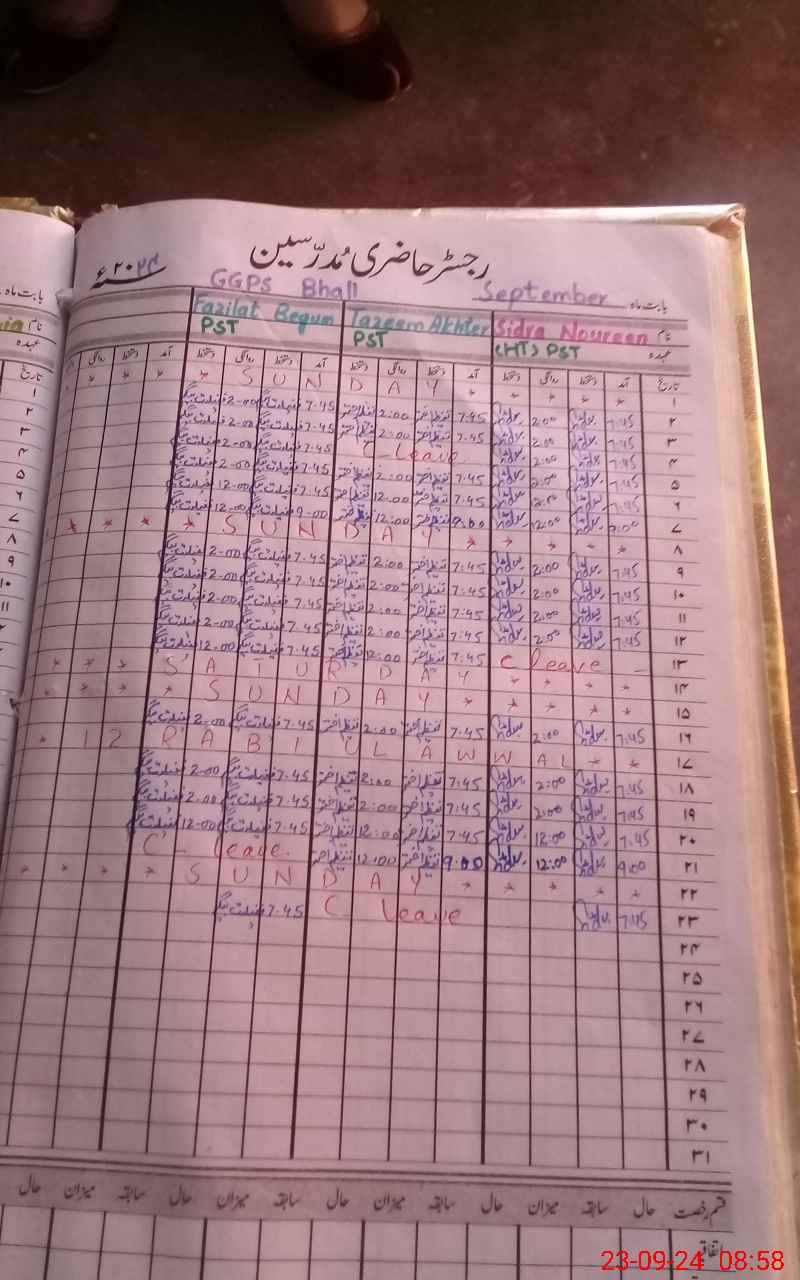 رجسٹر حاضری مدرّسین
۲۰۲۴ء
GGPS Bhall September بابت ماہ
Fazilat Begum Tazeem Akhter Sidra Noureen نام
PST PST (HT) PST عہدہ
تاریخ آمد دستخط روانگی دستخط آمد دستخط روانگی دستخط آمد دستخط روانگی دستخط آمد دستخط روانگی
۱ SUNDAY
۲ 7:45 2:00 7:45 تنظیم اختر 2:00 تنظیم اختر 7.45 فضیلت بیگم 2-00 فضیلت بیگم
۳ 7:45 2:00 7:45 تنظیم اختر 2:00 تنظیم اختر 7.45 فضیلت بیگم 2-00 فضیلت بیگم
۴ 7:45 2:00 C_Leave 7.45 فضیلت بیگم 2-00 فضیلت بیگم
۵ 7:45 2:00 7:45 تنظیم اختر 2:00 تنظیم اختر 7.45 فضیلت بیگم 2-00 فضیلت بیگم
۶ 7:45 7:45 تنظیم اختر 12:00 تنظیم اختر 7.45 فضیلت بیگم 12-00 فضیلت بیگم
۷ 9:00 12:00 9:00 تنظیم اختر 12:00 تنظیم اختر 9-00 فضیلت بیگم 12-00 فضیلت بیگم
۸ SUNDAY
۹ 7:45 2:00 7:45 تنظیم اختر 2:00 تنظیم اختر 7.45 فضیلت بیگم 2-00 فضیلت بیگم
۱۰ 7:45 2:00 7:45 تنظیم اختر 2:00 تنظیم اختر 7.45 فضیلت بیگم 2-00 فضیلت بیگم
۱۱ 7:45 2:00 7:45 تنظیم اختر 2:00 تنظیم اختر 7.45 فضیلت بیگم 2-00 فضیلت بیگم
۱۲ 7:45 2:00 7:45 تنظیم اختر 2:00 تنظیم اختر 7.45 فضیلت بیگم 2-00 فضیلت بیگم
۱۳ C leave 7:45 تنظیم اختر 12:00 تنظیم اختر 7.45 فضیلت بیگم 12-00 فضیلت بیگم
۱۴ SATURDAY
۱۵ SUNDAY
۱۶ 7:45 2:00 7:45 تنظیم اختر 2:00 تنظیم اختر 7.45 فضیلت بیگم 2-00 فضیلت بیگم
۱۷ RABI UL AWWAL
۱۸ 7:45 2:00 7:45 تنظیم اختر 2:00 تنظیم اختر 7.45 فضیلت بیگم 2-00 فضیلت بیگم
۱۹ 7:45 2:00 7:45 تنظیم اختر 2:00 تنظیم اختر 7.45 فضیلت بیگم 2-00 فضیلت بیگم
۲۰ 7:45 12:00 7:45 تنظیم اختر 12:00 تنظیم اختر 7.45 فضیلت بیگم 12-00 فضیلت بیگم
۲۱ 9:00 12:00 9:00 تنظیم اختر 12:00 تنظیم اختر C_ leave.
۲۲ SUNDAY
۲۳ 7:45 C_ Leave 7.45 فضیلت بیگم
۲۴
۲۵
۲۶
۲۷
۲۸
۲۹
۳۰
۳۱
قسم رخصت حال سابقہ میزان حال سابقہ میزان حال سابقہ میزان حال سابقہ میزان حال
اتفاقیہ
23-09-24 08:58